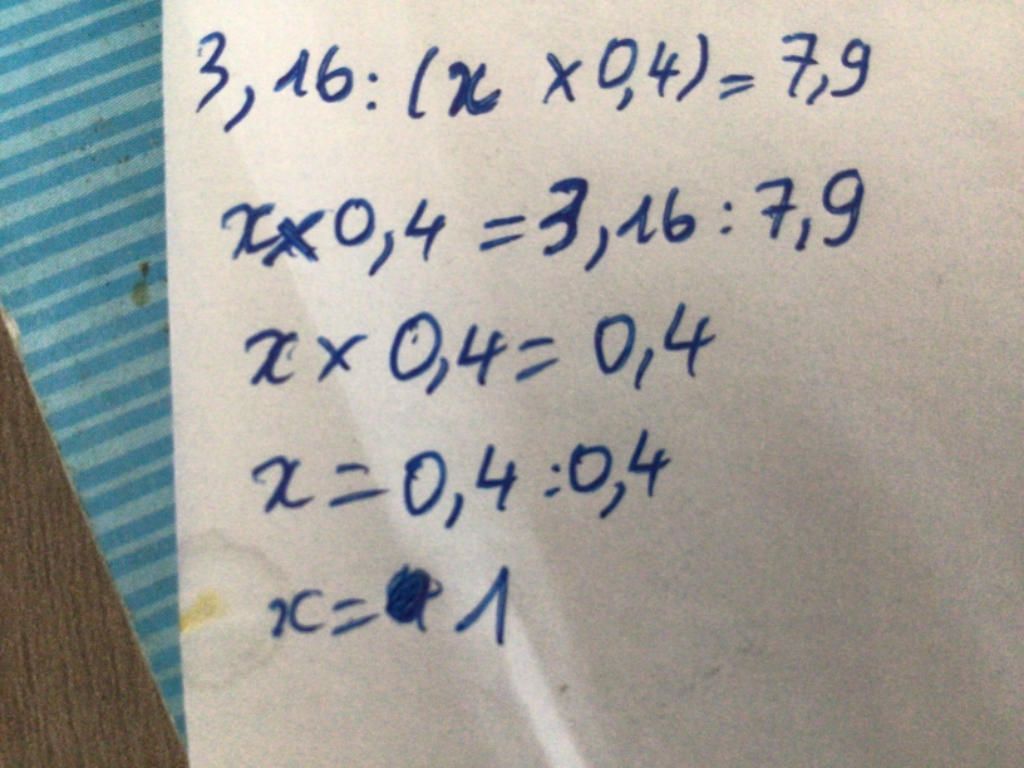 3,16 : (x × 0,4) = 7,9
x × 0,4 = 3,16 : 7,9
x × 0,4 = 0,4
x = 0,4 : 0,4
x = 1